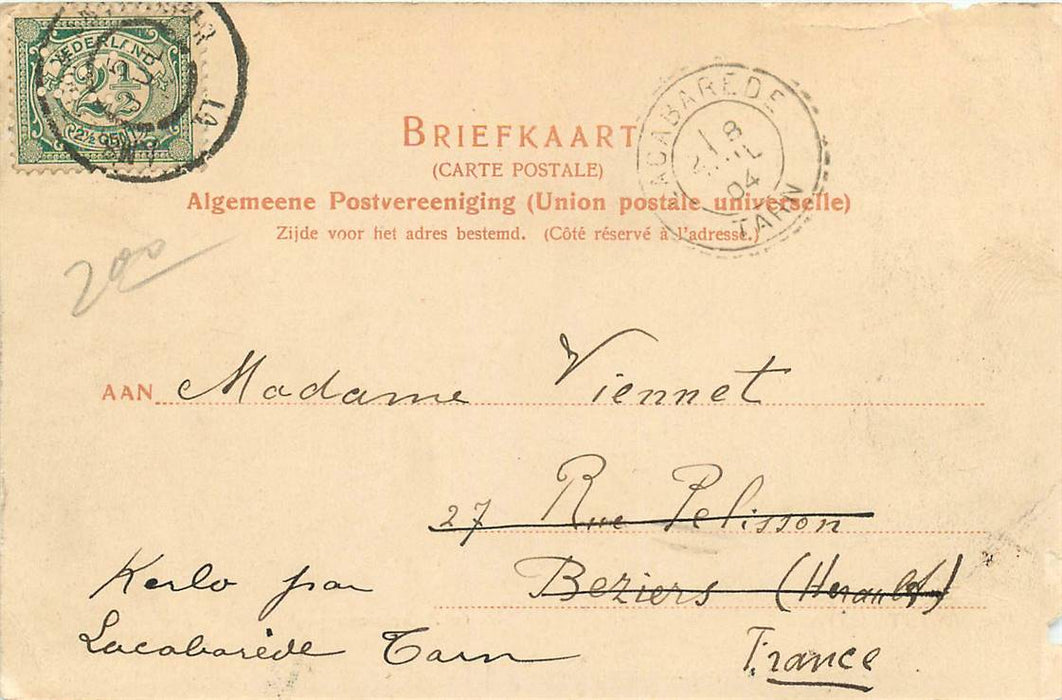 NEDERLAND
2½
(2½ CENT)
LACABARÈDE
18
JUIL
04
TARN
BRIEFKAART
(CARTE POSTALE)
Algemeene Postvereeniging (Union postale universelle)
Zijde voor het adres bestemd. (Côté réservé à l'adresse.)
200
AAN Madame Viennet
27 Rue Pelisson
Beziers (Herault)
Kerlo par
Lacabarède Tarn
France